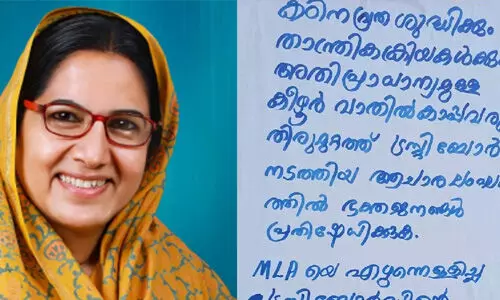 കഠിനവ്രതശുദ്ധിക്കും
താന്ത്രികക്രിയകൾക്കും
അതിപ്രാധാന്യമുള്ള
കീഴൂർ വാതിൽകാപ്പവരു
തിരുമുറ്റത്ത് ട്രസ്റ്റിബോർ
നടത്തിയ ആചാരലംഘന
ത്തിൽ ഭക്തജനങ്ങൾ
പ്രതിഷേധിക്കുക.
MLA യെ എഴുന്നെള്ളിച്ച